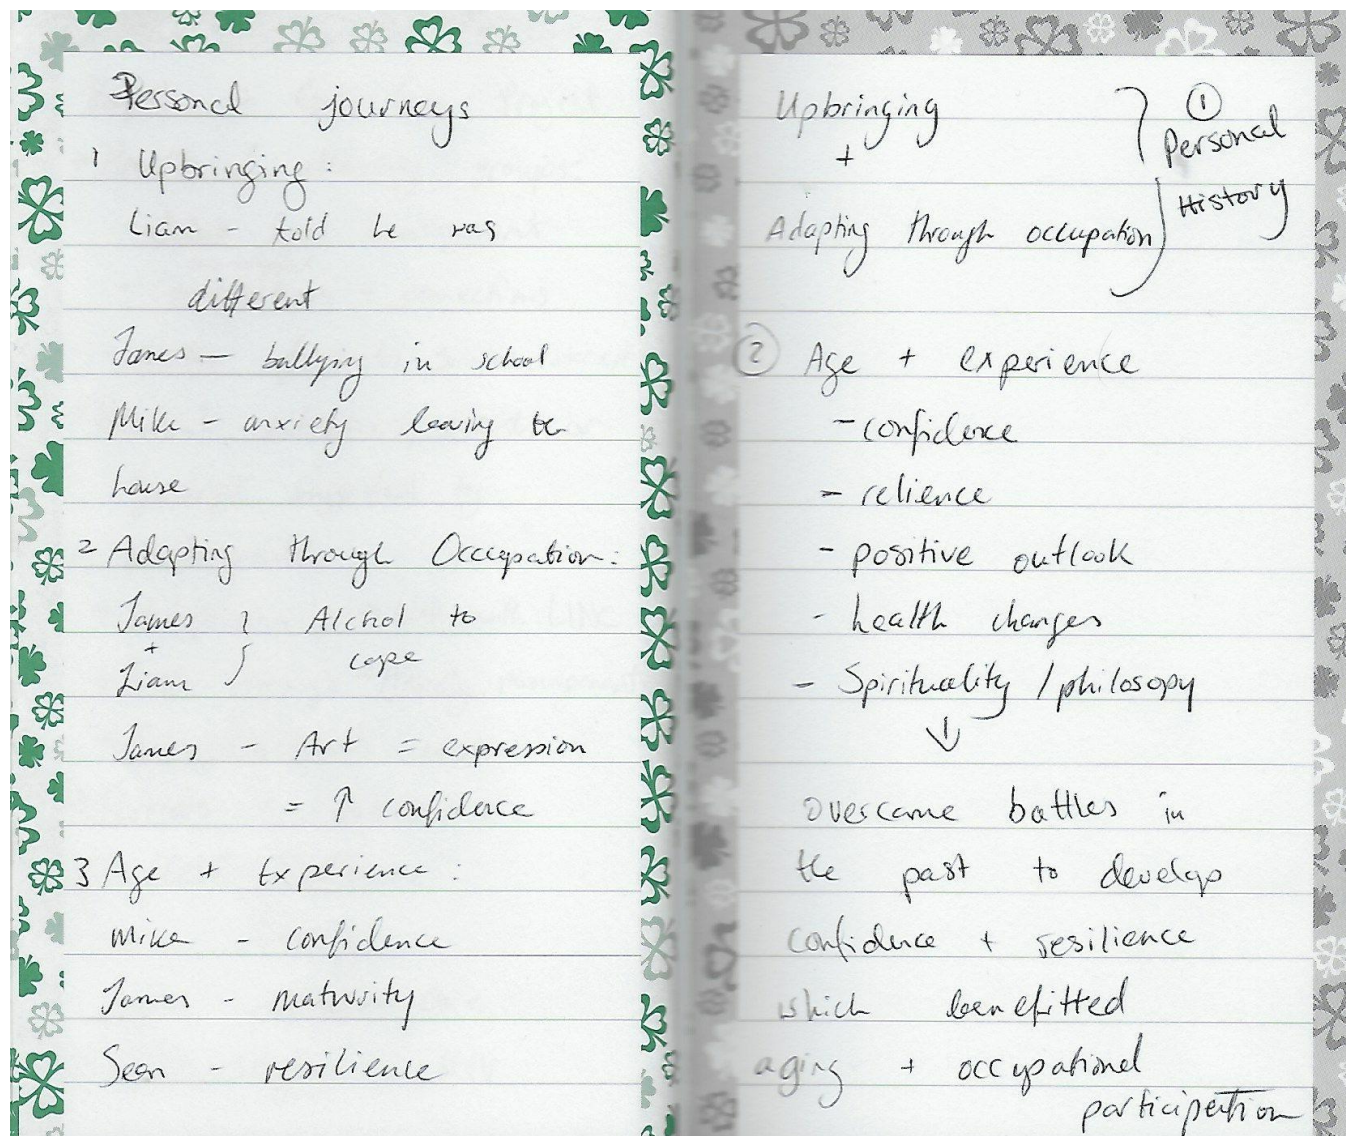 Personal journeys
1 Upbringing:
Liam - told he was
different
James - bullying in school
Mike - anxiety leaving the
house
2 Adapting through Occupation:
James
+
Liam
} Alchol to
cope
James - Art = expression
= ↑ confidence
3 Age + Experience:
Mike - confidence
James - maturity
Sean - resilience
Upbringing
+
Adapting through occupation
} ① Personal
History
② Age + experience
- confidence
- relience
- positive outlook
- health changes
- Spirituality / philosopy
↓
overcame battles in
the past to develop
confidence + resilience
which benefitted
aging + occupational
participation